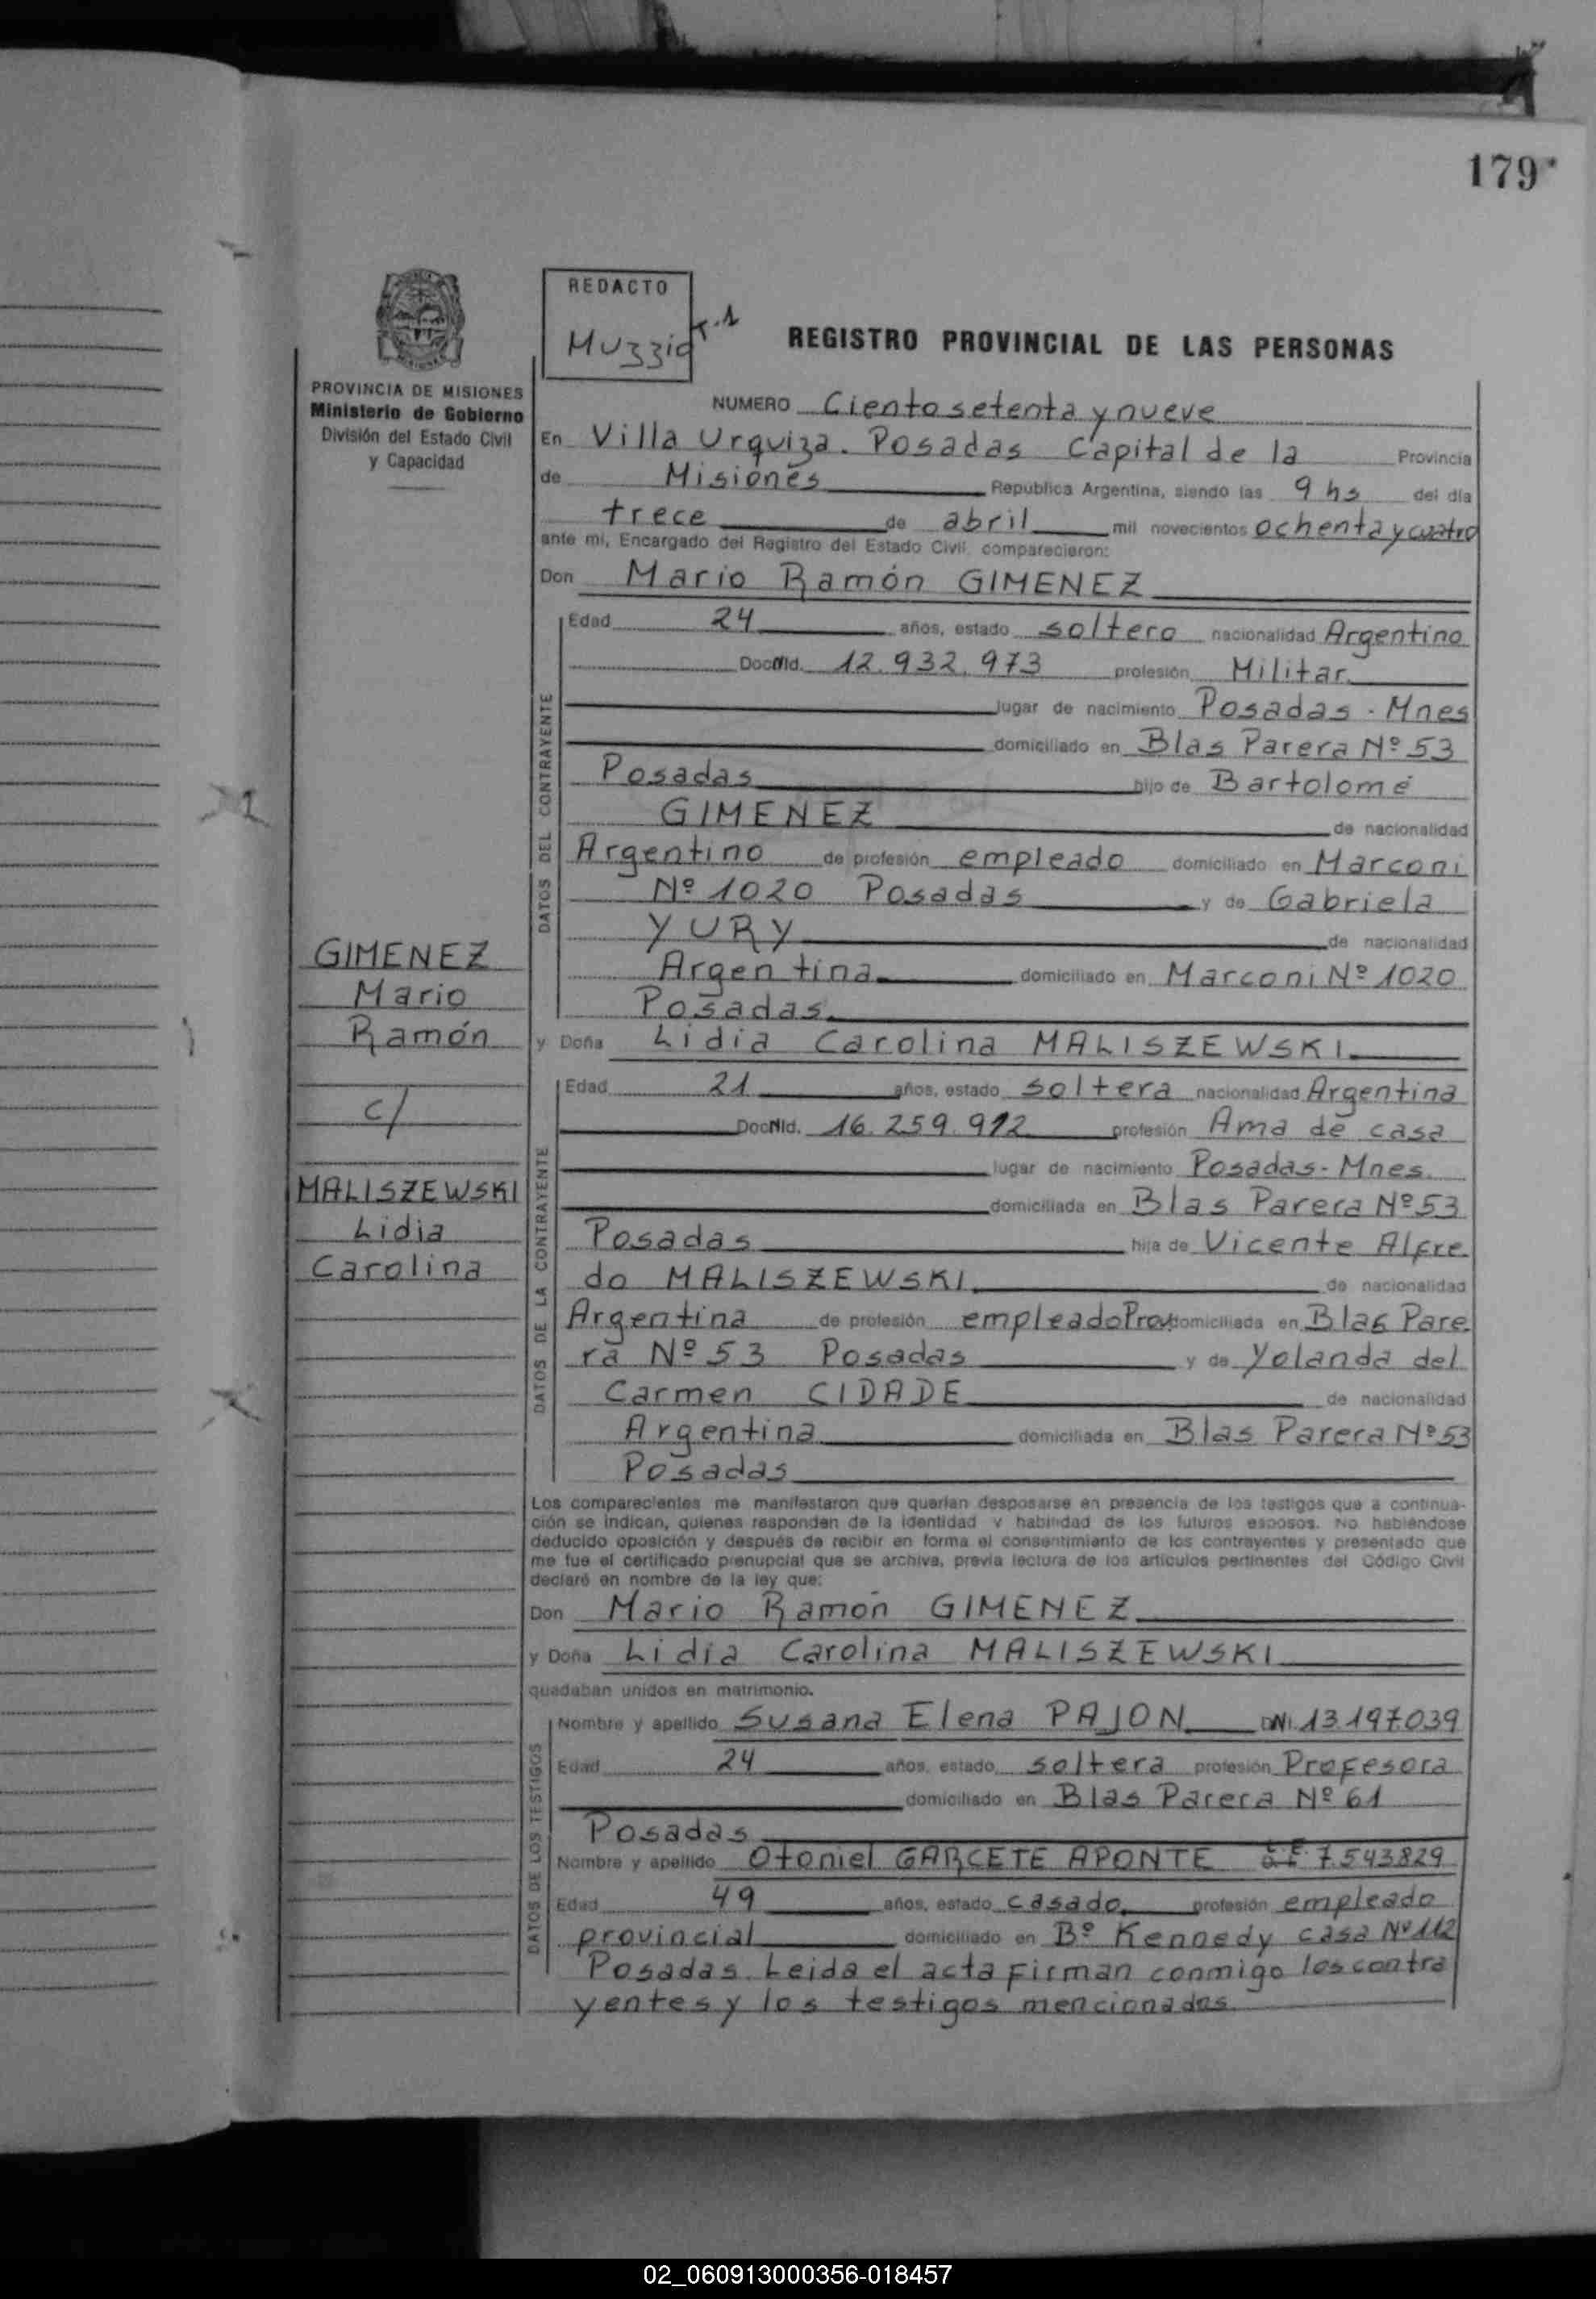 179
REDACTO
Muzzio
T.1
REGISTRO PROVINCIAL DE LAS PERSONAS
PROVINCIA DE MISIONES
Ministerio de Gobierno
División del Estado Civil
y Capacidad
NUMERO Ciento setenta y nueve
En Villa Urquiza. Posadas Capital de la Provincia
de Misiones República Argentina, siendo las 9 hs del día
trece de abril mil novecientos ochenta y cuatro
ante mí, Encargado del Registro del Estado Civil, comparecieron:
Don Mario Ramón GIMENEZ
DATOS DEL CONTRAYENTE
Edad 24 años, estado soltero nacionalidad Argentino
Doc.Nid. 12.932.973 profesión Militar
lugar de nacimiento Posadas - Mnes
domiciliado en Blas Parera Nº 53
Posadas hijo de Bartolomé
GIMENEZ de nacionalidad
Argentino de profesión empleado domiciliado en Marconi
Nº 1020 Posadas y de Gabriela
YURY de nacionalidad
Argentina domiciliado en Marconi Nº 1020
Posadas.
GIMENEZ
Mario
Ramón
c/
MALISZEWSKI
Lidia
Carolina
y Doña Lidia Carolina MALISZEWSKI
DATOS DE LA CONTRAYENTE
Edad 21 años, estado soltera nacionalidad Argentina
Doc.Nid. 16.259.912 profesión Ama de casa
lugar de nacimiento Posadas - Mnes.
domiciliada en Blas Parera Nº 53
Posadas hija de Vicente Alfre
do MALISZEWSKI de nacionalidad
Argentina de profesión empleado Prov. domiciliada en Blas Pare
ra Nº 53 Posadas y de Yolanda del
Carmen CIDADE de nacionalidad
Argentina domiciliada en Blas Parera Nº 53
Posadas
Los comparecientes me manifestaron que querían desposarse en presencia de los testigos que a continua-
ción se indican, quienes responden de la identidad y habilidad de los futuros esposos. No habiéndose
deducido oposición y después de recibir en forma el consentimiento de los contrayentes y presentado que
me fue el certificado prenupcial que se archiva, previa lectura de los artículos pertinentes del Código Civil
declaré en nombre de la ley que:
Don Mario Ramón GIMENEZ
y Doña Lidia Carolina MALISZEWSKI
quedaban unidos en matrimonio.
DATOS DE LOS TESTIGOS
Nombre y apellido Susana Elena PAJON DNI 13.197.039
Edad 24 años, estado soltera profesión Profesora
domiciliado en Blas Parera Nº 61
Posadas
Nombre y apellido Otoniel GARCETE APONTE 7.543.829
Edad 49 años, estado casado profesión empleado
provincial domiciliado en Bº Kennedy casa Nº 112
Posadas. Leida el acta firman conmigo los contra
yentes y los testigos mencionados
02_060913000356-018457